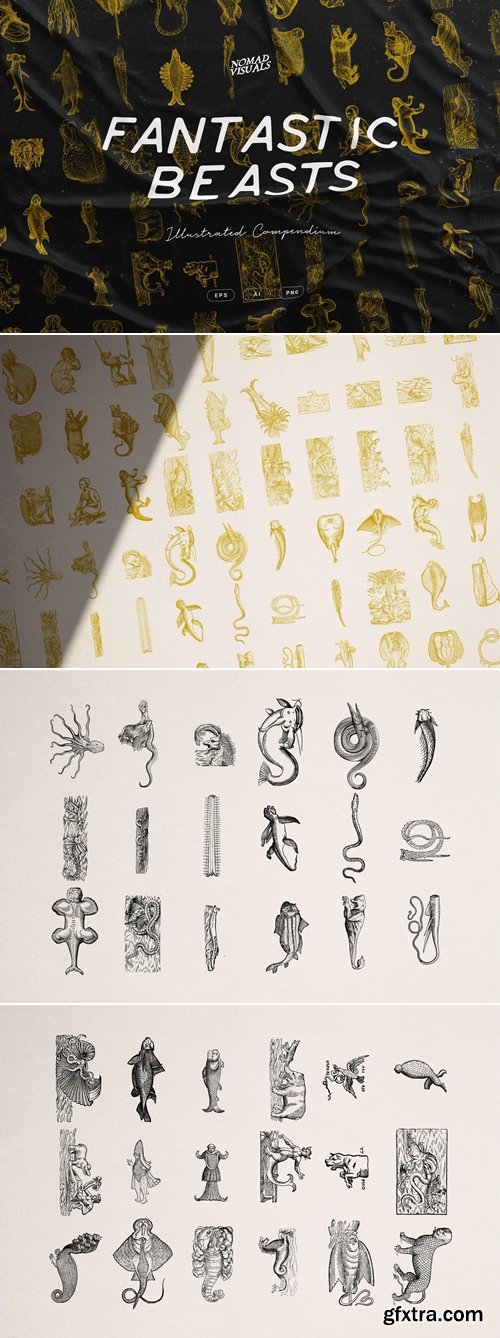 NOMAD
VISUALS
FANTASTIC
BEASTS
Illustrated Compendium
EPS
AI
PNG
gfxtra.com